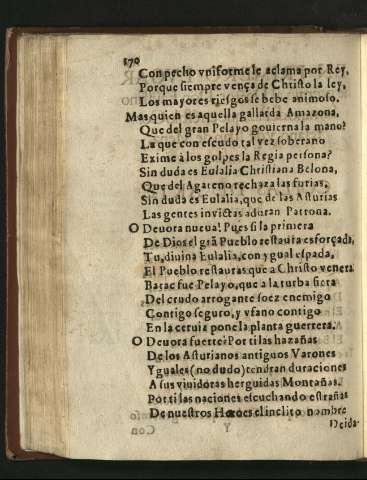 170
Con pecho vniforme le aclama por Rey,
Porque siempre vença de Christo la ley,
Los mayores riesgos se bebe animoso.
Mas quien es aquella gallarda Amazona,
Que del gran Pelayo gouierna la mano?
La que con escudo tal vez soberano
Exime à los golpes la Regia persona?
Sin duda es Eulalia Christiana Belona,
Que del Agareno rechaza las furias,
Sin duda es Eulalia, que de las Asturias
Las gentes invictas aduran Patrona.
O Deuora nueua! Pues si la primera
De Dios el grã Pueblo restaura esforçada,
Tu, diuina Eulalia, con ygual espada,
El Pueblo restauras que a Christo venera
Barac fue Pelayo, que a la turba fiera
Del crudo arrogante soez enemigo
Contigo seguro, y vfano contigo
En la ceruiz pone la planta guerrera.
O Deuora fuerte! Por ti las hazañas
De los Asturianos antiguos Varones
Yguales (no dudo) tendran duraciones
A sus viuidoras herguidas Montañas.
Por ti las naciones escuchando estrañas
De nuestros Heroes el inclito nombre
Y
Deida-